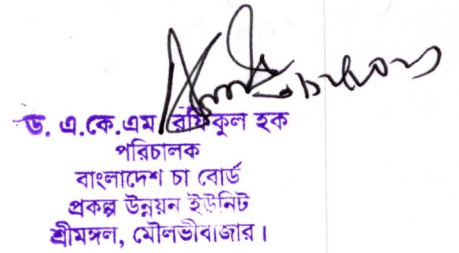 ড. এ.কে.এম রফিকুল হক
পরিচালক
বাংলাদেশ চা বোর্ড
প্রকল্প উন্নয়ন ইউনিট
শ্রীমঙ্গল, মৌলভীবাজার।